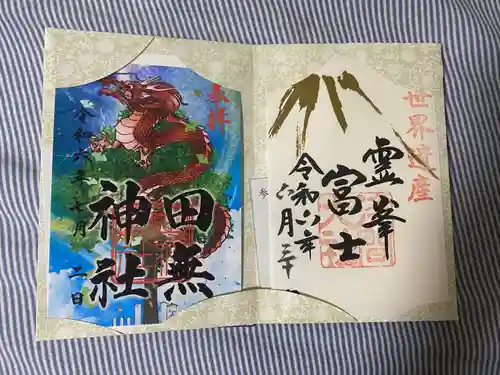 世界遺産
霊峯
富士
令和六年
六月三十
参
奉拝
田無
神社
令和六年七月二日